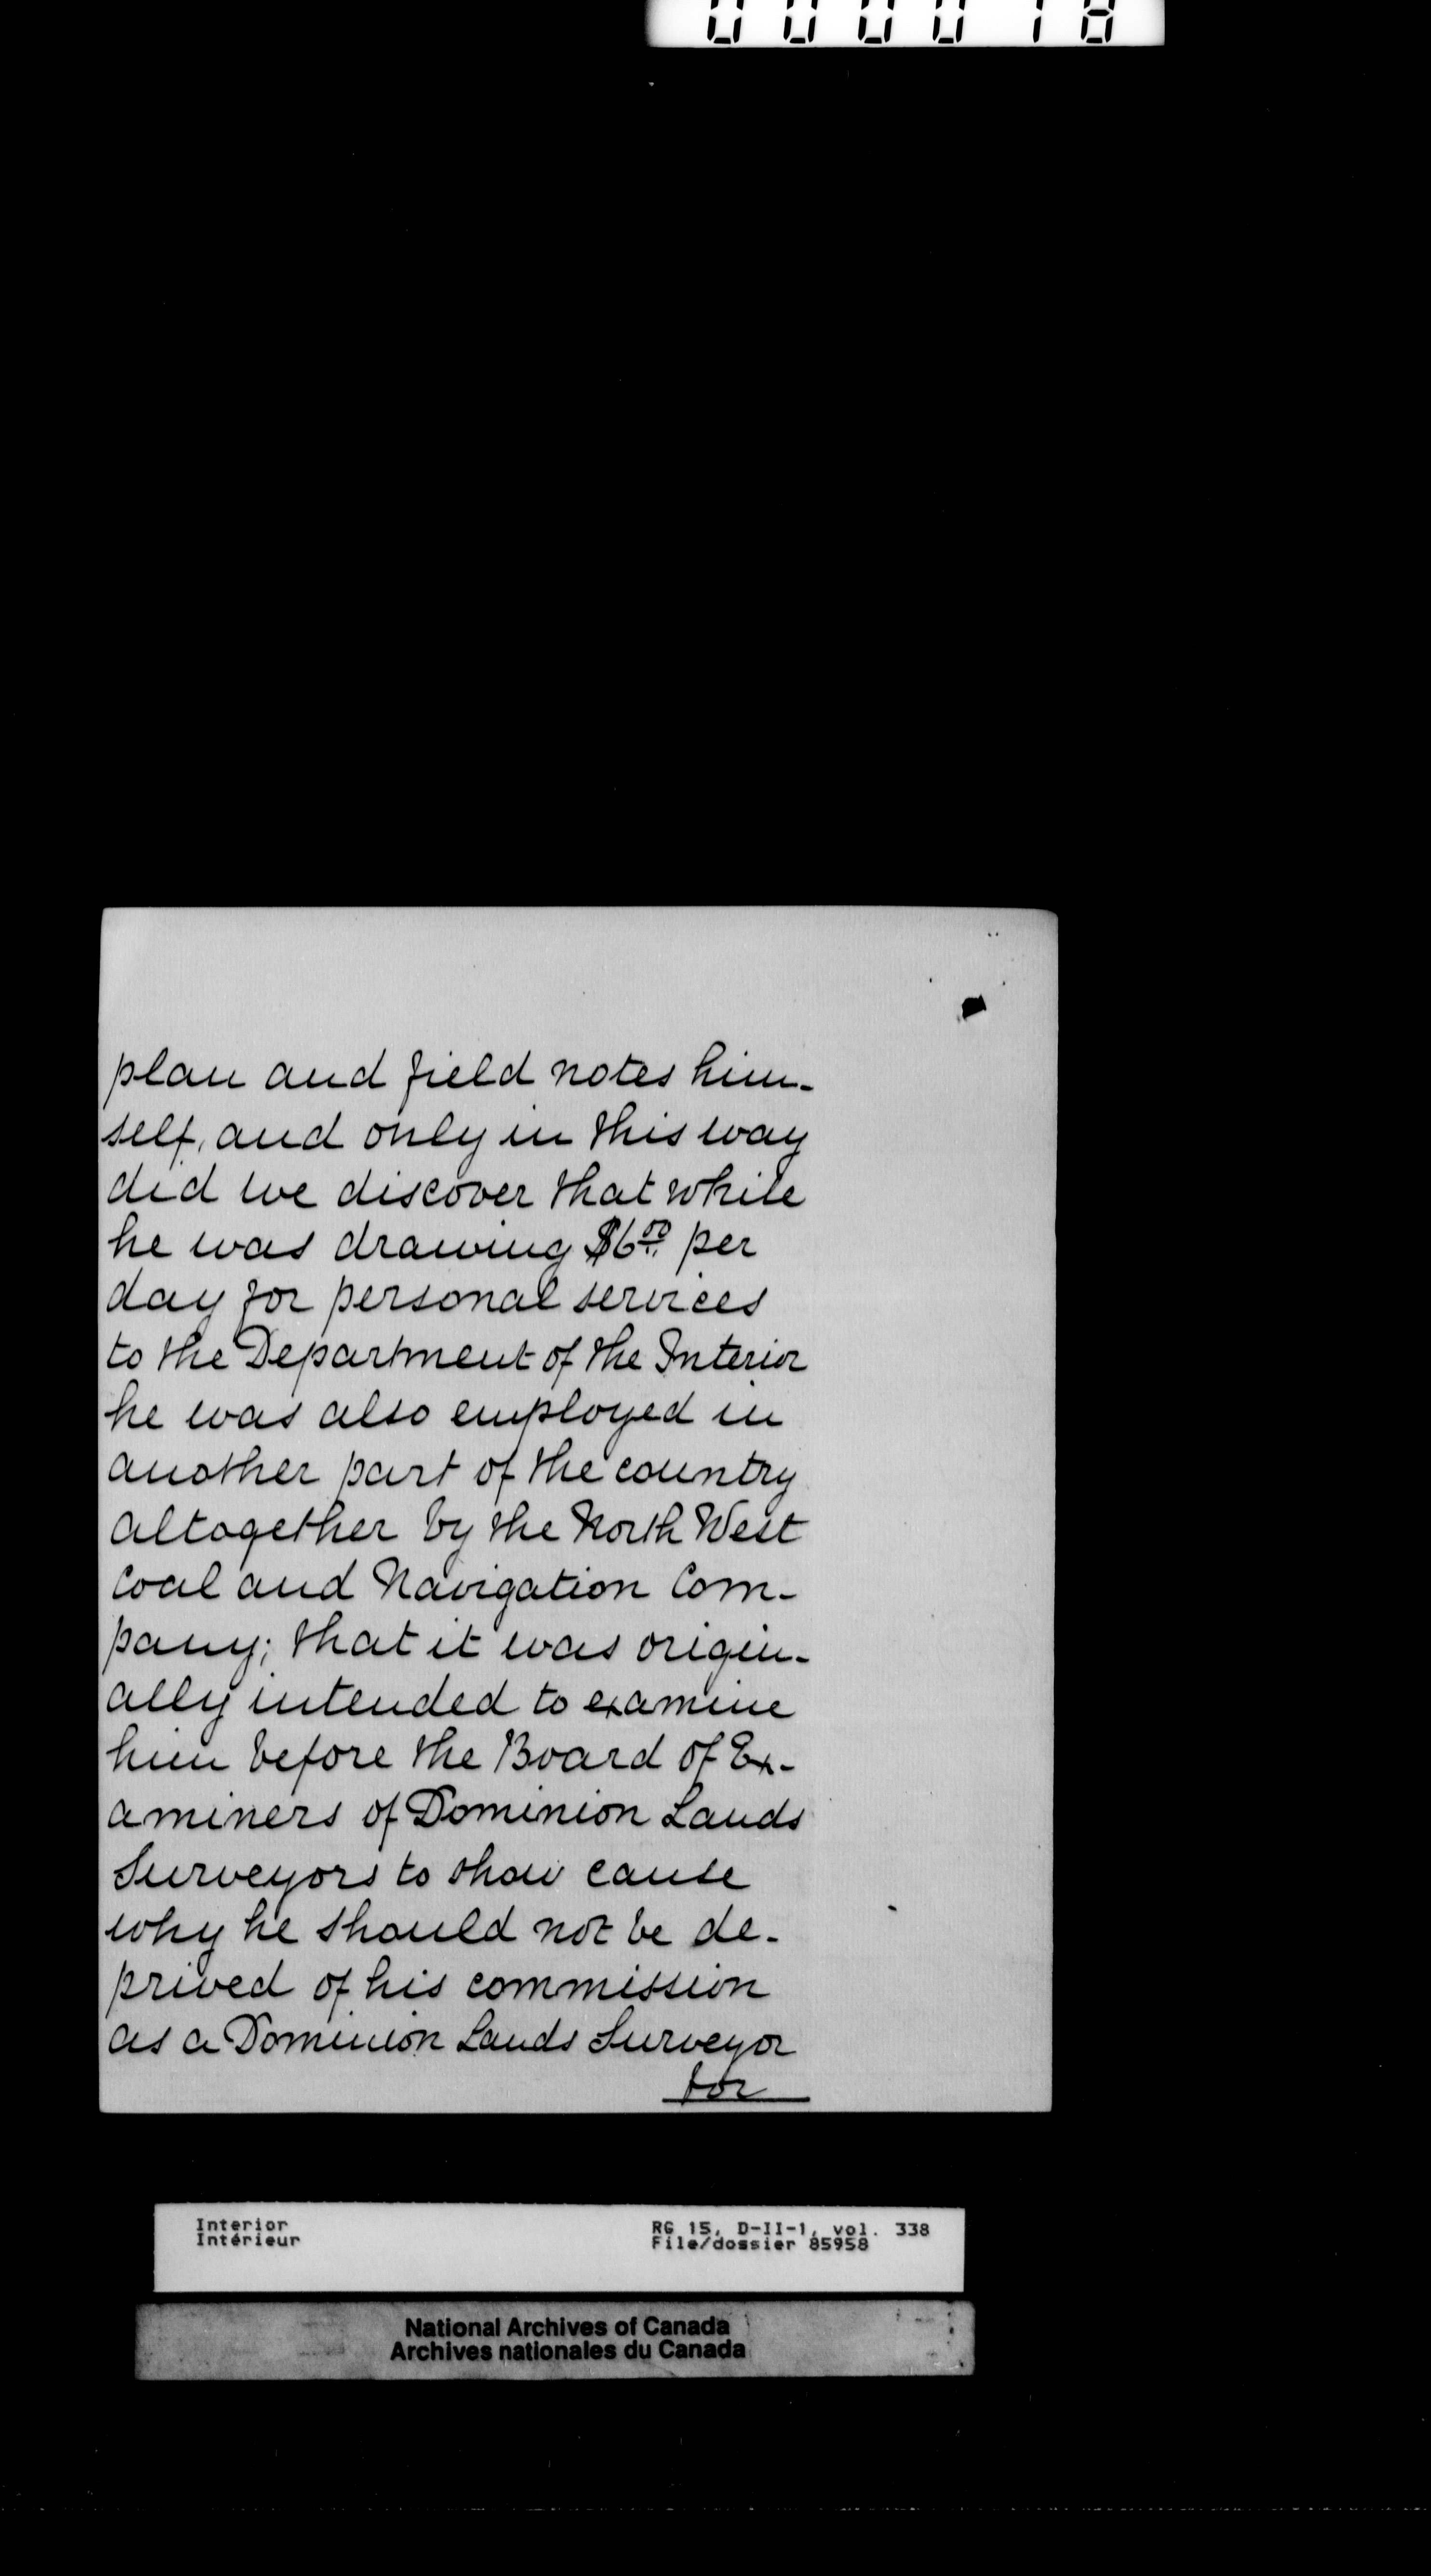 000018
plan and field notes him-
self, and only in this way
did we discover that while
he was drawing $6.00 per
day for personal services
to the Department of the Interior
he was also employed in
another part of the country
altogether by the North West
Coal and Navigation Com-
pany; that it was origin-
ally intended to examine
him before the Board of Ex-
aminers of Dominion Lands
Surveyors to show cause
why he should not be de-
prived of his commission
as a Dominion Lands Surveyor
for
Interior
Intérieur
RG 15, D-II-1, vol. 338
File/dossier 85958
National Archives of Canada
Archives nationales du Canada